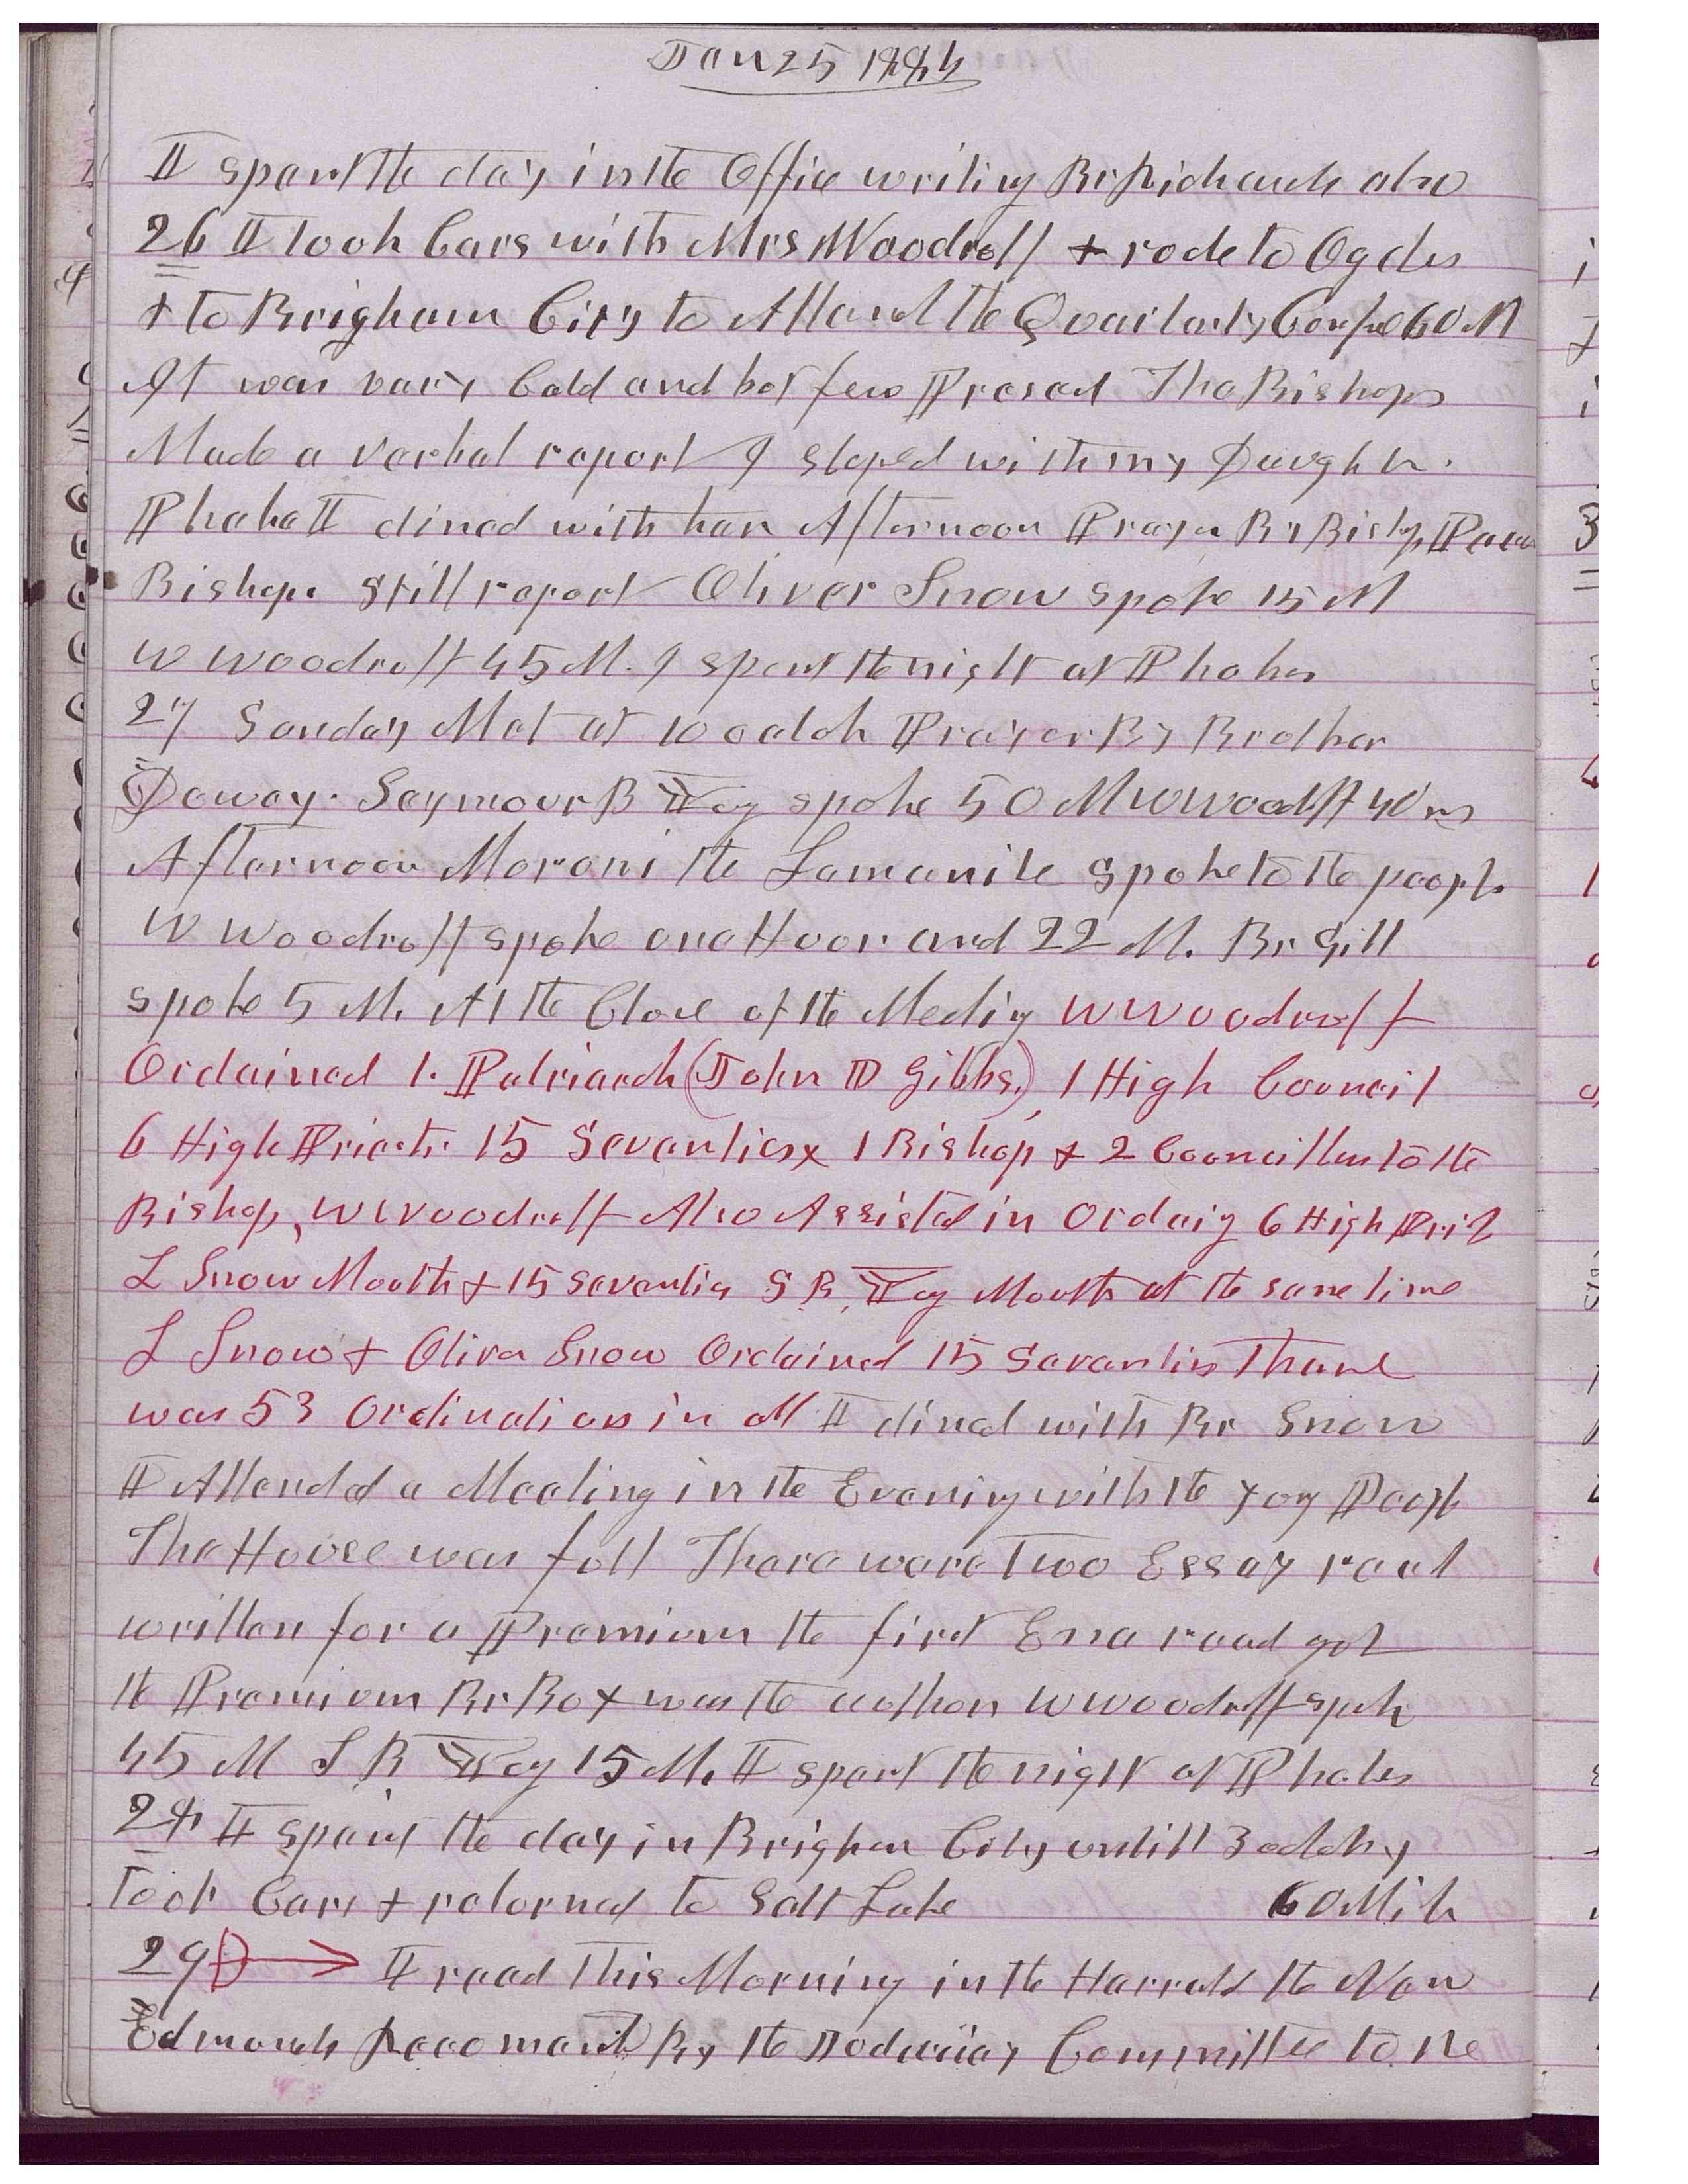 Jan 25 1884
I spent the day in the Office writing Br Richards also
26 I took Cars with Mrs Woodruff & rode to Ogden
& to Brigham City to Attend the Quarterly Confe 60 M
It was vary Cold and but few Present The Bishops
Made a verbal report I stoped with my Daughter
Phebe I dined with her Afternoon Prayer By Bishop
Bishops Still report Oliver Snow spoke 15 M
W Woodruff 45 M. I spent the night at Phebes
27 Sunday Met at 10 oclok Prayer By Brother
Dewey. Seymour B Young spoke 50 M W Woodruff 40 m
Afternoon Moroni the Lamanite spoke to the people
W Woodruff spoke one Hour and 22 M. Br Gill
spoke 5 M. At the Close of the Meeting W Woodruff
Ordained 1. Patriarch (John D Gibbs,) 1 High Council
6 High Priests 15 Seventies 1 Bishop & 2 Councillors to the
Bishop, W Woodruff Also Assisted in Ordaing 6 High Priest
L Snow Mouth & 15 Seventies S B. Young Mouth at the same time
L Snow & Oliver Snow Ordained 15 Seventies Thare
was 53 Ordinations in all I dined with Br Snow
I Attended a Meeting in the Evening with the Yong People
The House was full Thare ware Two Essay read
written for a Premium the first Ena read got
the Premium Br Box was the author W Woodruff spoke
45 M S B Young 15 M. I spent the night at Phebes
28 I spent the day in Brigham City untill 3 oclok
Took Cars & returned to Salt Lake 60 Mile
29 I read This Morning in the Harrald the New
Edmonds by the Judiciary Committee to the